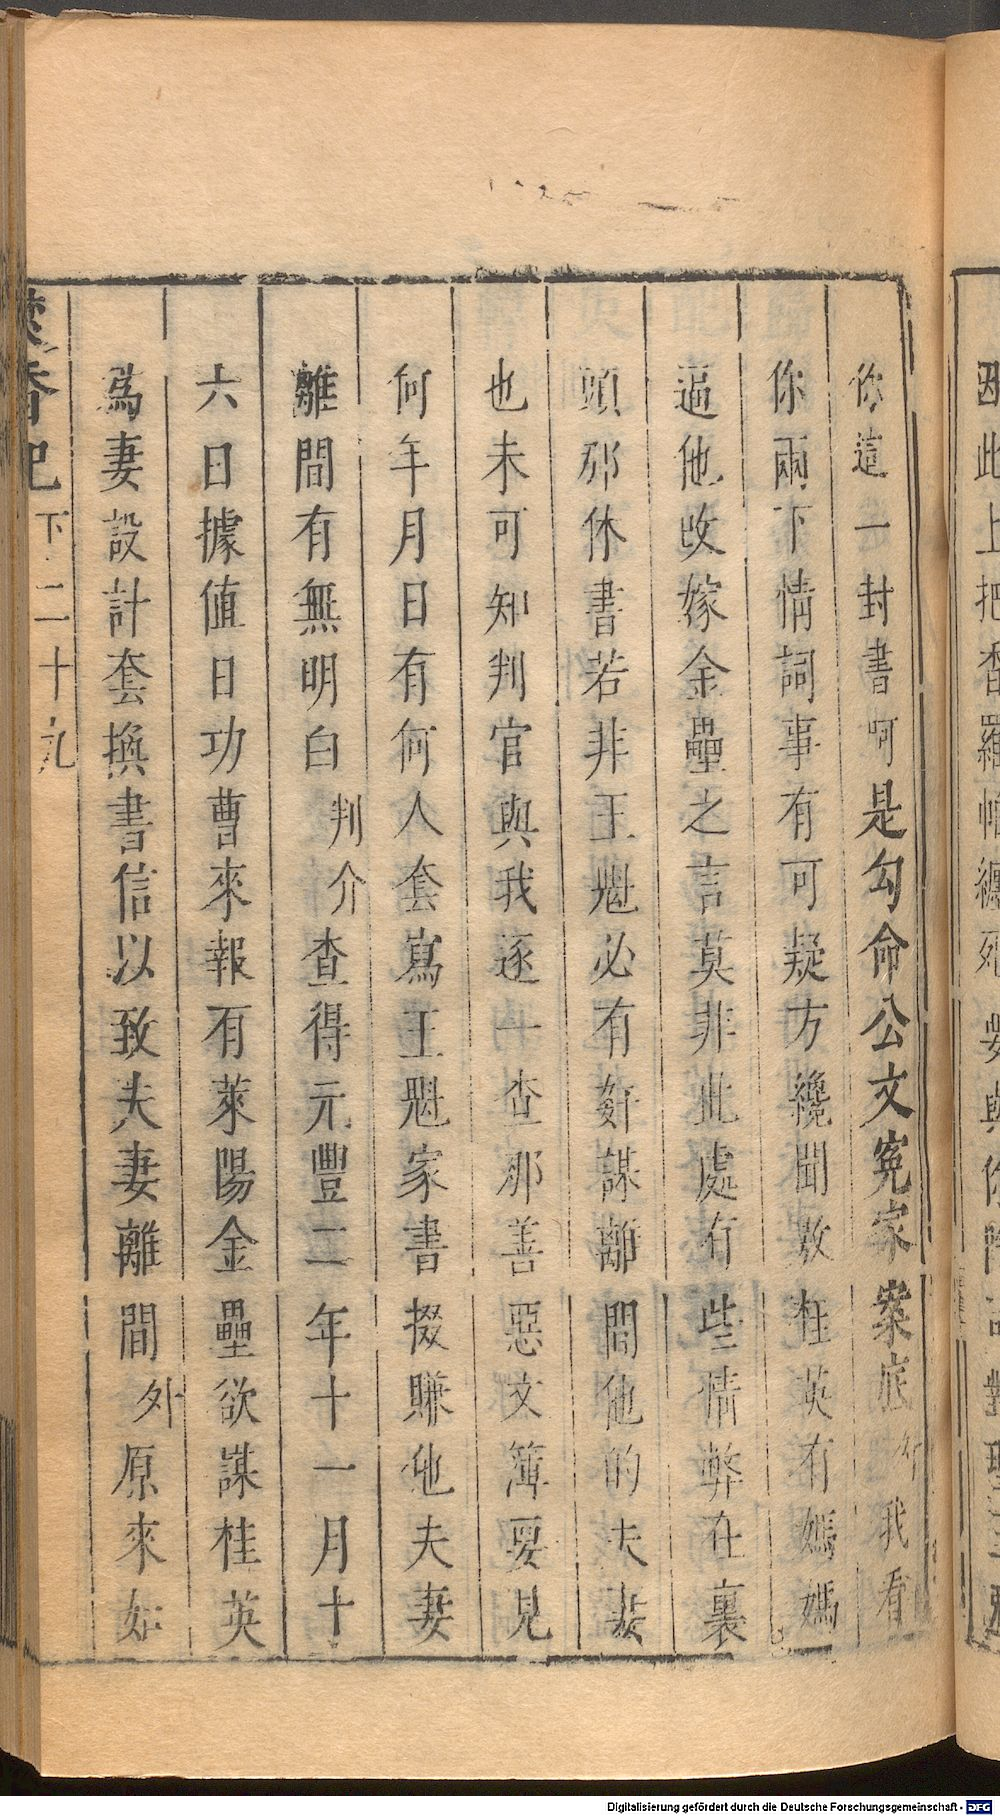 因此上把香羅帕纏死要與你隂司對
你這一封書呵是勾命公文寃家案底外我看
你兩下情詞事有可疑方纔聞敫桂英有媽媽
逼他改嫁金壘之言莫非此處有些情弊在裏
頭那休書若非王魁必有奸謀離間他的夫妻
也未可知判官與我逐一查那善惡文簿要見
何年月日有何人套寫王魁家書掇賺他夫妻
離間有無明白判介查得元豐二年十一月十
六日據値日功曹來報有萊陽金壘欲謀桂英
爲妻設計套換書信以致夫妻離間外原來如
焚香記
下二十九
Digitalisierung gefördert durch die Deutsche Forschungsgemeinschaft - DFG